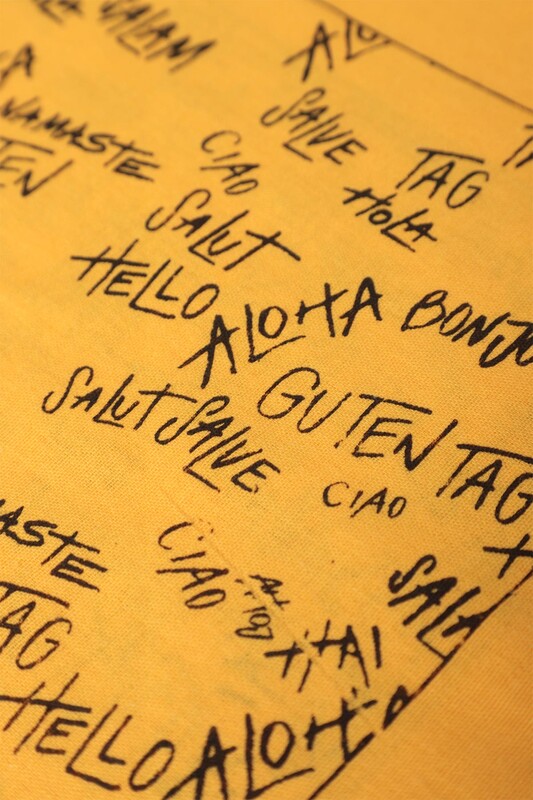 ALO
SALVE
NAMASTE
CIAO
TAG
HOLA
SALUT
HELLO
ALOHA
BONJO
GUTEN TAG
SALUT SALVE
CIAO
ASTE
CIAO
SALA
TAG
HELLO ALOHA